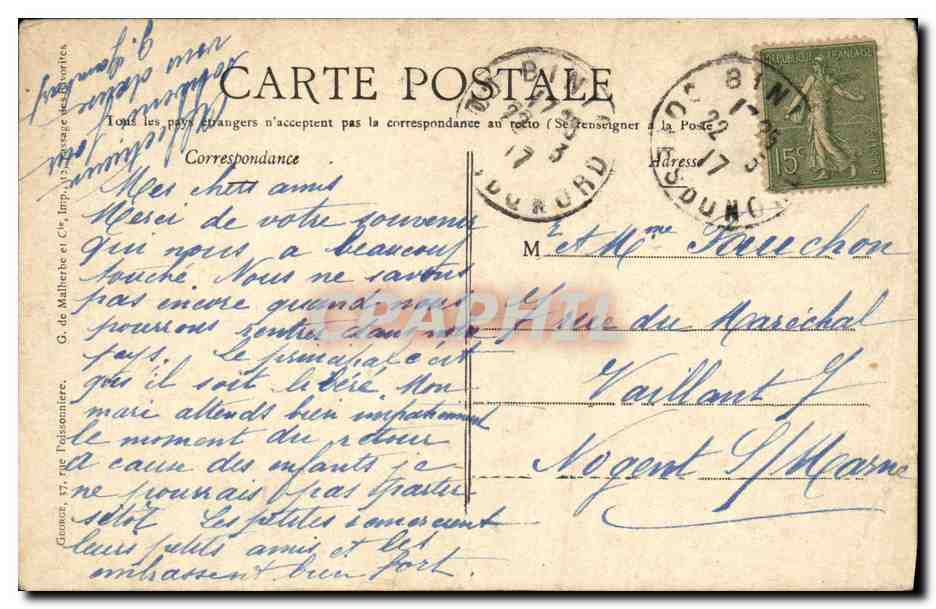 CARTE POSTALE
Tous les pays étrangers n'acceptent pas la correspondance au recto (Se renseigner à la Poste
Correspondance
Adresse
REPUBLIQUE FRANÇAISE
15c
22
17
3
G. de Malherbe et Cie, Imp., 12, Passage des Favorites
GEORGE, 37, rue Poissonniere.
CPAPHIL
Mes chers amis
Merci de votre souvenir
qui nous a beaucoup
touché Nous ne savons
pas encore quand nous
pourrons rentrer dans notre
pays. Le principal c'est
qu'il soit libéré. Mon
mari attends bien impatiemment
le moment du retour
A cause des enfants je
ne pourrais pas partir
sitôt Les petites remercient
leurs petits amis et les
embrassent bien fort.
M r Et Mme Fauchon
7 rue du Maréchal
Vaillant 7
Nogent S/Marne